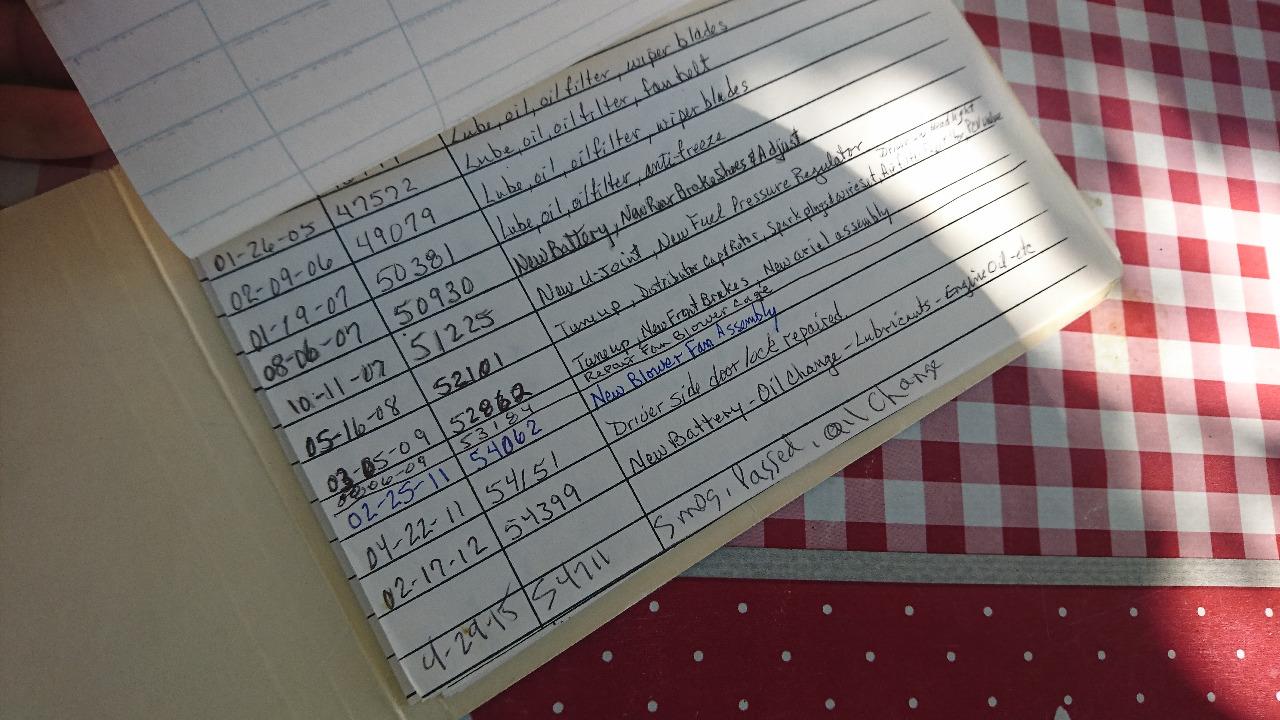 Lube, oil, oil filter, wiper blades
01-26-05 47572 Lube, oil, oil filter, fan belt
02-09-06 49079 Lube, oil, oilfilter, wiper blades
01-19-07 50381 Lube, oil, oilfilter, anti-freeze
08-06-07 50930 New Battery, New Rear Brakeshoes & Adjust
10-11-07 51225 New U-Joint, New Fuel Pressure Regulator
05-16-08 52101 Tune up, Distributor Cap & Rotor, Spark plugs & wires
03-05-09 52862 Tuneup, New Front Brakes, New ariel assembly
06-09 53184 Repair Fan Blower Cage
02-25-11 54062 New Blower Fan Assembly
04-22-11 54151 Driver side door lock repaired.
02-17-12 54399 New Battery - Oil Change - Lubricants - Engine Oil - etc
4-29-15 54711 Smog, Passed, oil Change